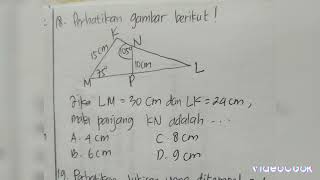 18. Perhatikan gambar berikut!
K
N
15cm
105°
10cm
L
75°
M
P
Jika LM = 30 Cm dan LK = 24 cm,
maka panjang KN adalah ...
A. 4 cm C. 8 cm
B. 6 cm D. 9 cm
19. Perhatikan lukisan yang
VideoCook